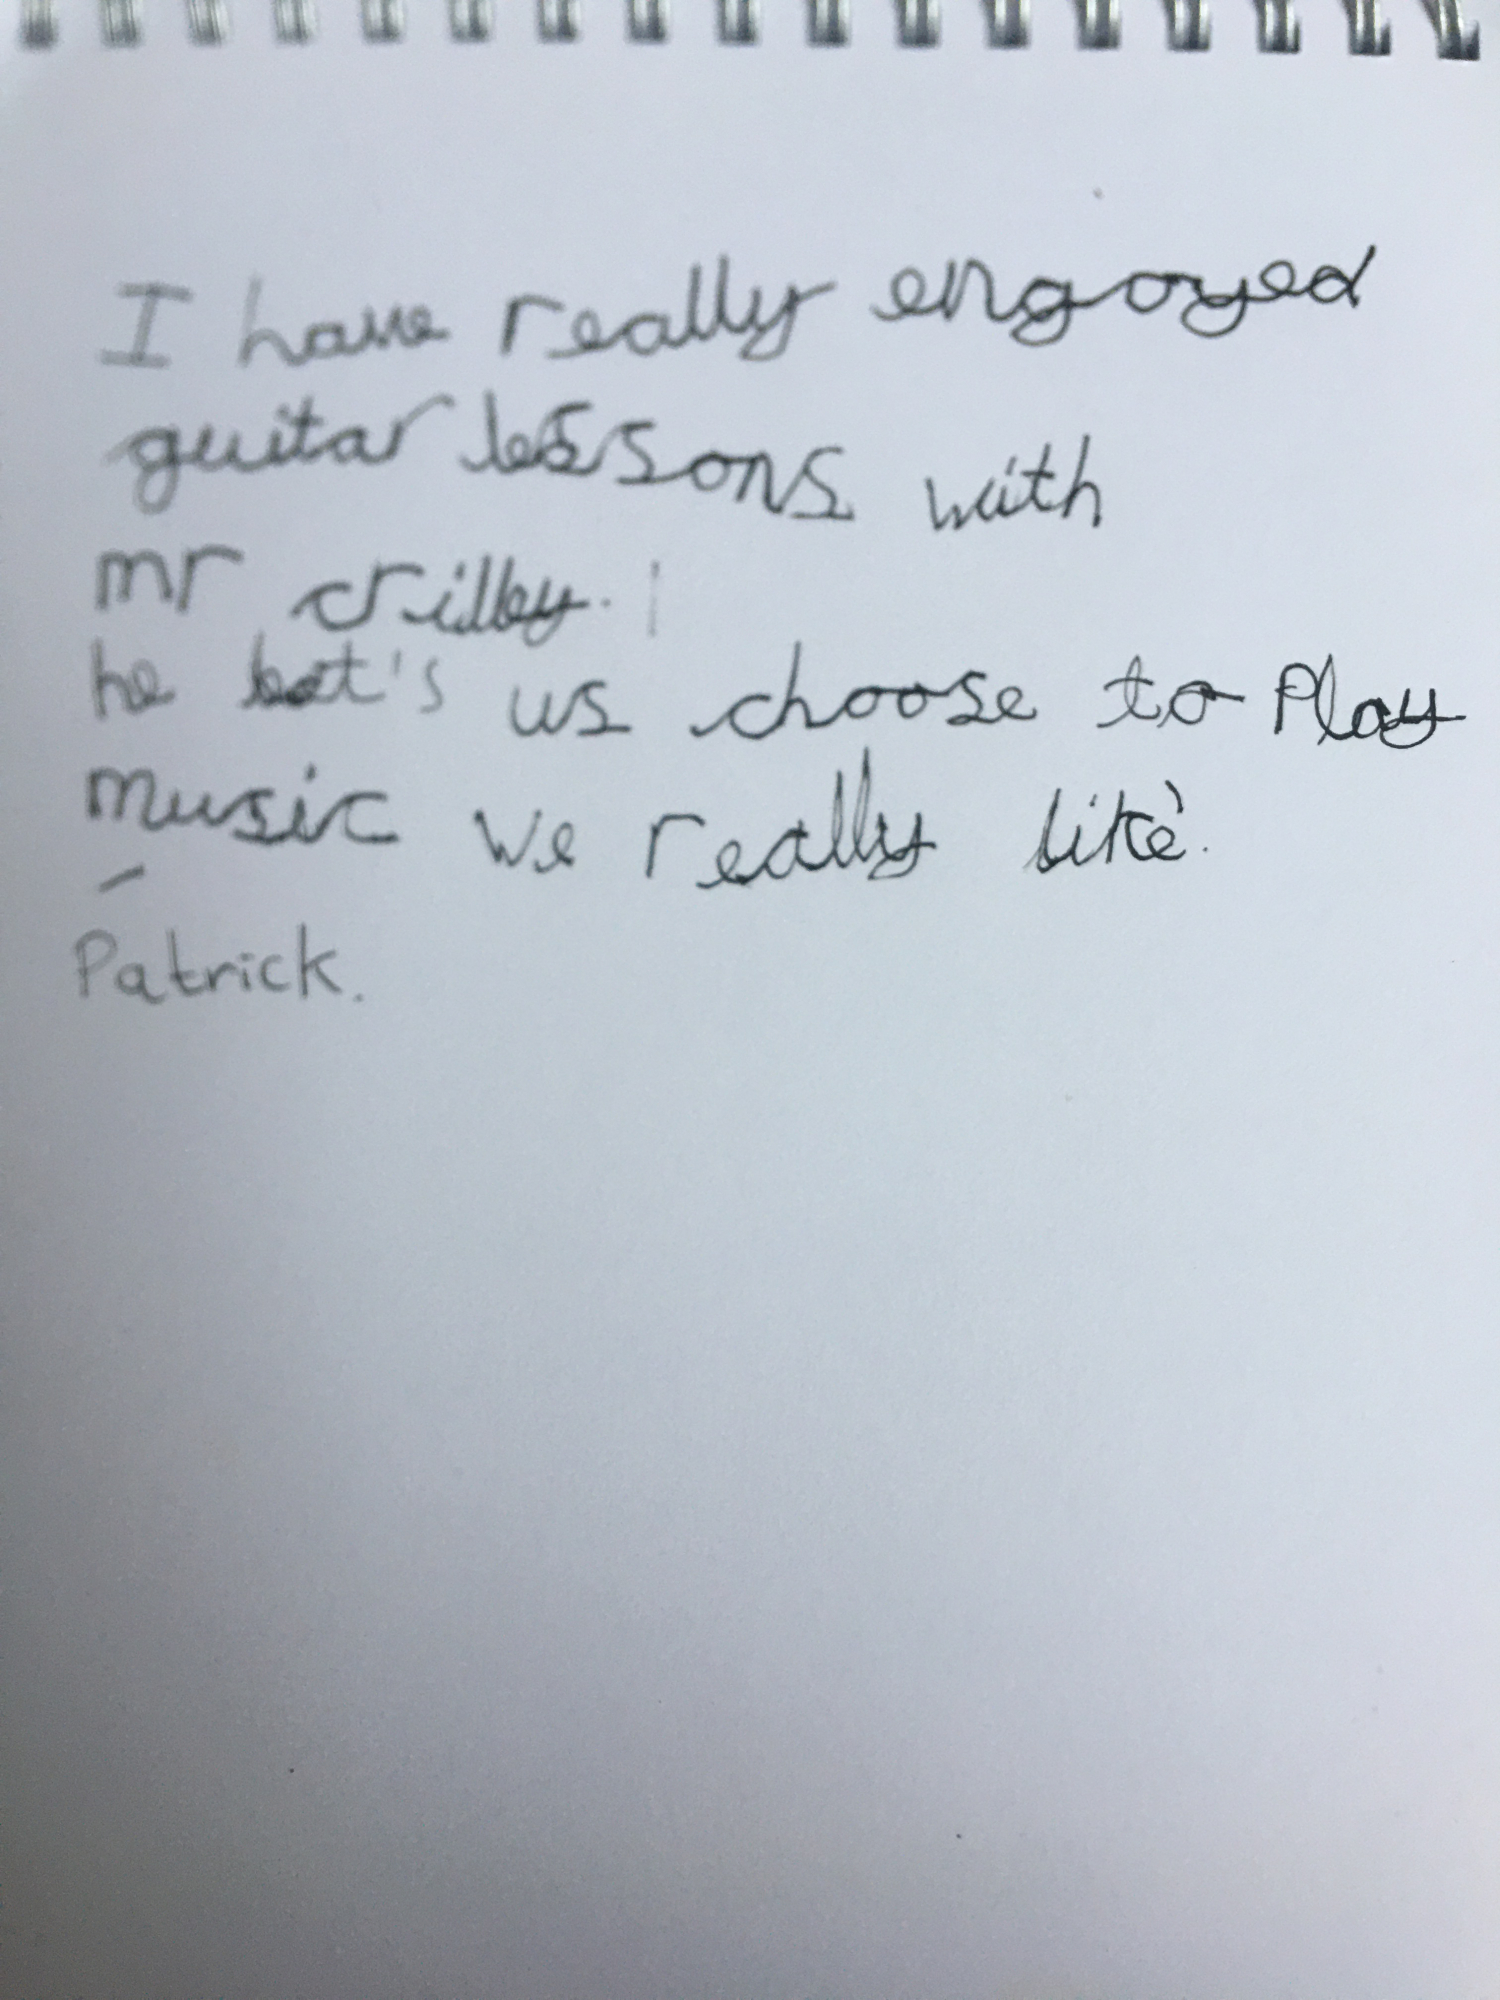 I have really engoyed
guitar lessons with
mr crilley.
he let's us choose to Play
music we really like.
-
Patrick.